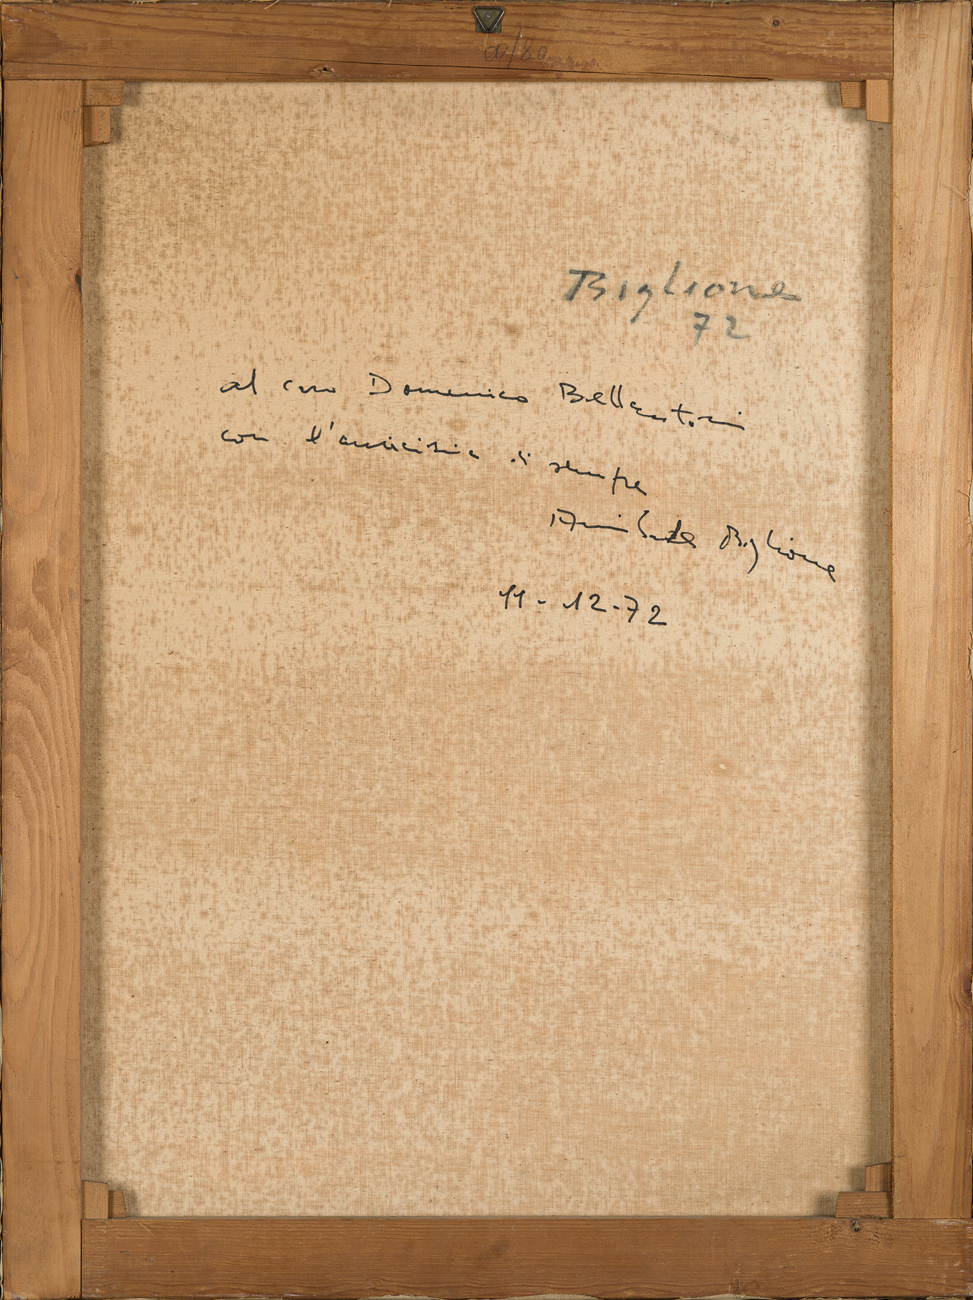 60/80
Biglione
72
al caro Domenico Bellantoni
con l'amicizia di sempre
Annibale Biglione
11-12-72